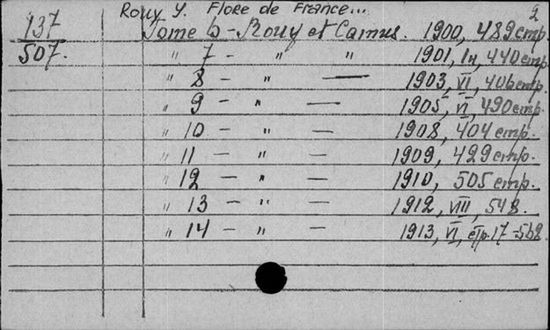 Rouy Y. Flore de France... 2
137 Tome 6 - Rouy et Camus. 1900, 489 стр.
507. " 7 - " " 1901, 440 стр.
" 8 - " — 1903, VI, 406 стр.
" 9 - " — 1905, VI, 490 стр.
" 10 - " — 1908, 404 стр.
" 11 - " — 1909, 429 стр.
" 12 - " — 1910, 505 стр.
" 13 - " — 1912, VIII, 548.
" 14 - " — 1913, VI, стр. 17-562